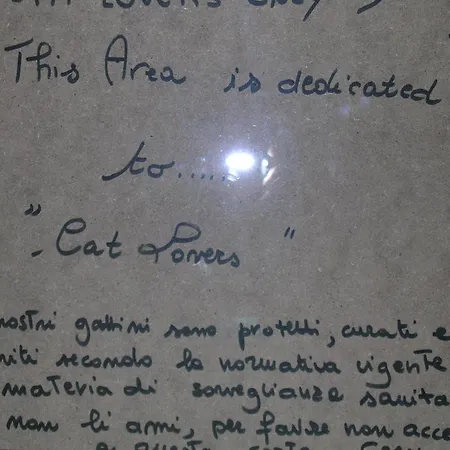 This Area is dedicated
to......
" Cat Lovers "
nostri gattini sono protetti, curati e
riti secondo la normativa vigente
materia di sorveglianza sanita
non li ami, per favore non acce